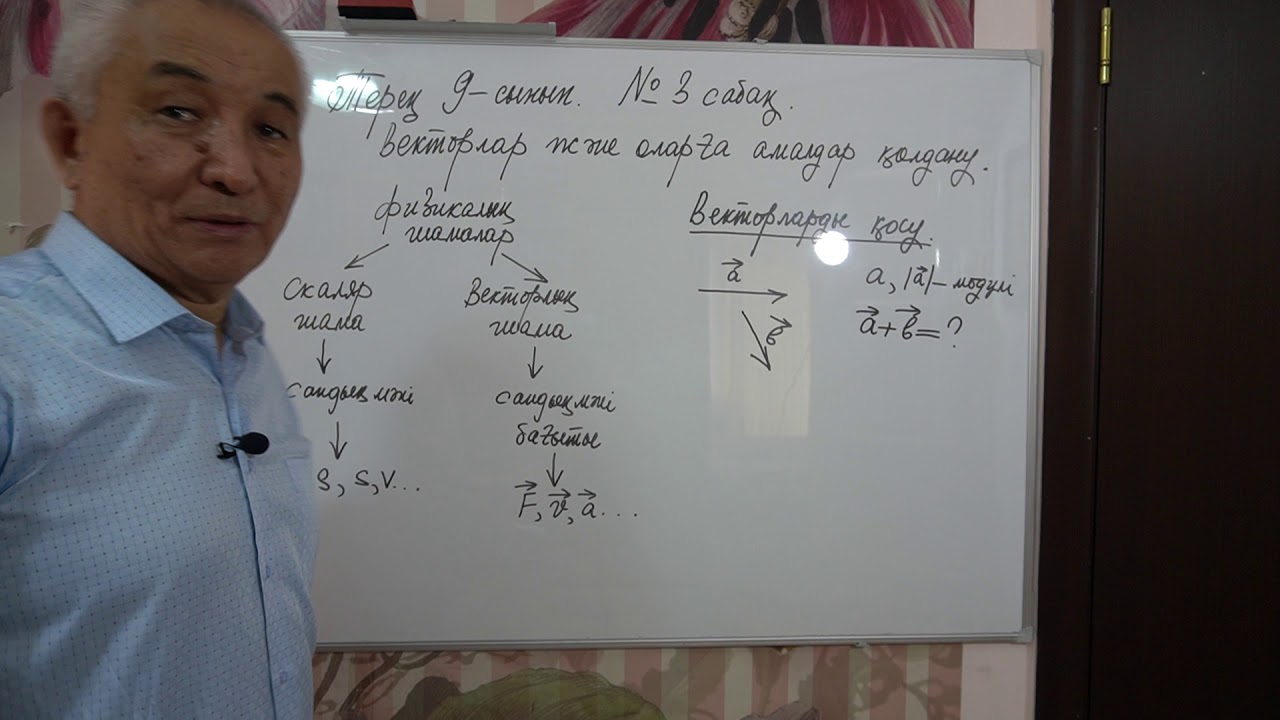 Терең 9-сынып. №3 сабақ.
Векторлар және оларға амалдар қолдану.
Физикалық
шамалар
Скаляр
шама
сандық мәні
s, S, V...
Векторлық
шама
сандық мәні
бағыты
F⃗, v⃗, a⃗...
Векторларды қосу.
a⃗
b⃗
a, |a⃗| – модулі
a⃗ + b⃗ = ?